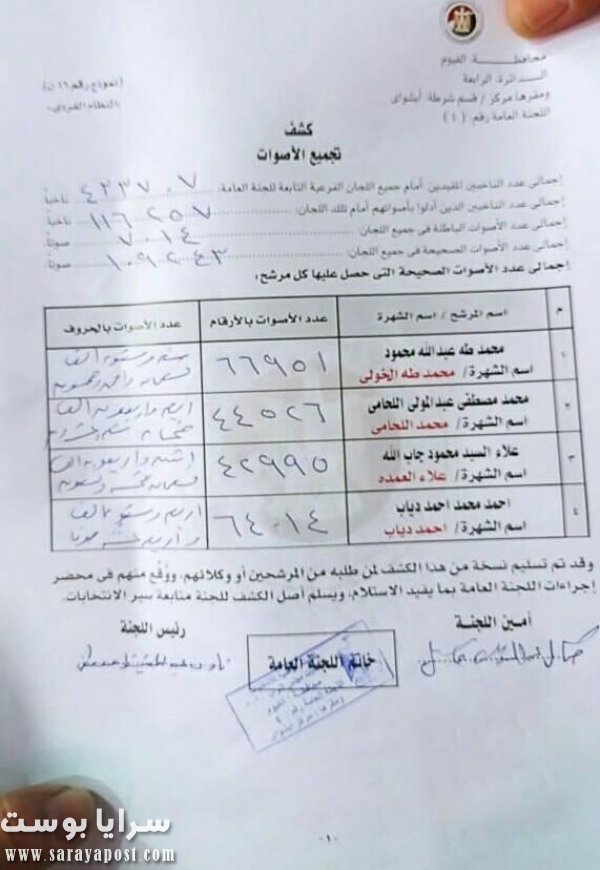 محافظة: الفيوم
الدائرة: الرابعة
ومقرها مركز / قسم شرطة: أبشواى
اللجنة العامة رقم: (٤)
(نموذج رقم ١٦ ن)
«النظام الفردى»
كشف
تجميع الأصوات
إجمالى عدد الناخبين المقيدين أمام جميع اللجان الفرعية التابعة للجنة العامة: ٤٢٣٧٠٧ ناخباً
إجمالى عدد الناخبين الذين أدلوا بأصواتهم أمام تلك اللجان: ١١٦٢٥٧ ناخباً
إجمالى عدد الأصوات الباطلة فى جميع اللجان: ٧٠١٤ صوتاً
إجمالى عدد الأصوات الصحيحة فى جميع اللجان: ١٠٩٢٤٣ صوتاً
إجمالى عدد الأصوات الصحيحة التى حصل عليها كل مرشح:
م اسم المرشح / اسم الشهرة عدد الأصوات بالأرقام عدد الأصوات بالحروف
١ محمد طه عبدالله محمود
اسم الشهرة/ محمد طه الخولى ٦٦٩٥١ ستة وستون ألف
تسعمائة واحد وخمسون
٢ محمد مصطفى عبدالمولى اللحامى
اسم الشهرة/ محمد اللحامى ٤٤٥٢٦ أربع وأربعون ألف
خمسمائة ستة وعشرون
٣ علاء السيد محمود جاب الله
اسم الشهرة/ علاء العمده ٤٢٩٩٥ اثنين وأربعون ألف
تسعمائة خمسة وتسعون
٤ احمد محمد احمد دياب
اسم الشهرة/ احمد دياب ٦٤٠١٤ أربع وستون ألف
وأربع عشر صوتا
وقد تم تسليم نسخة من هذا الكشف لمن طلبه من المرشحين أو وكلائهم، ووُقع منهم فى محضر
إجراءات اللجنة العامة بما يفيد الاستلام، ويسلم أصل الكشف للجنة متابعة سير الانتخابات.
أمين اللجنة
رئيس اللجنة
خاتم اللجنة العامة
-١-
سرايا بوست
www.sarayapost.com